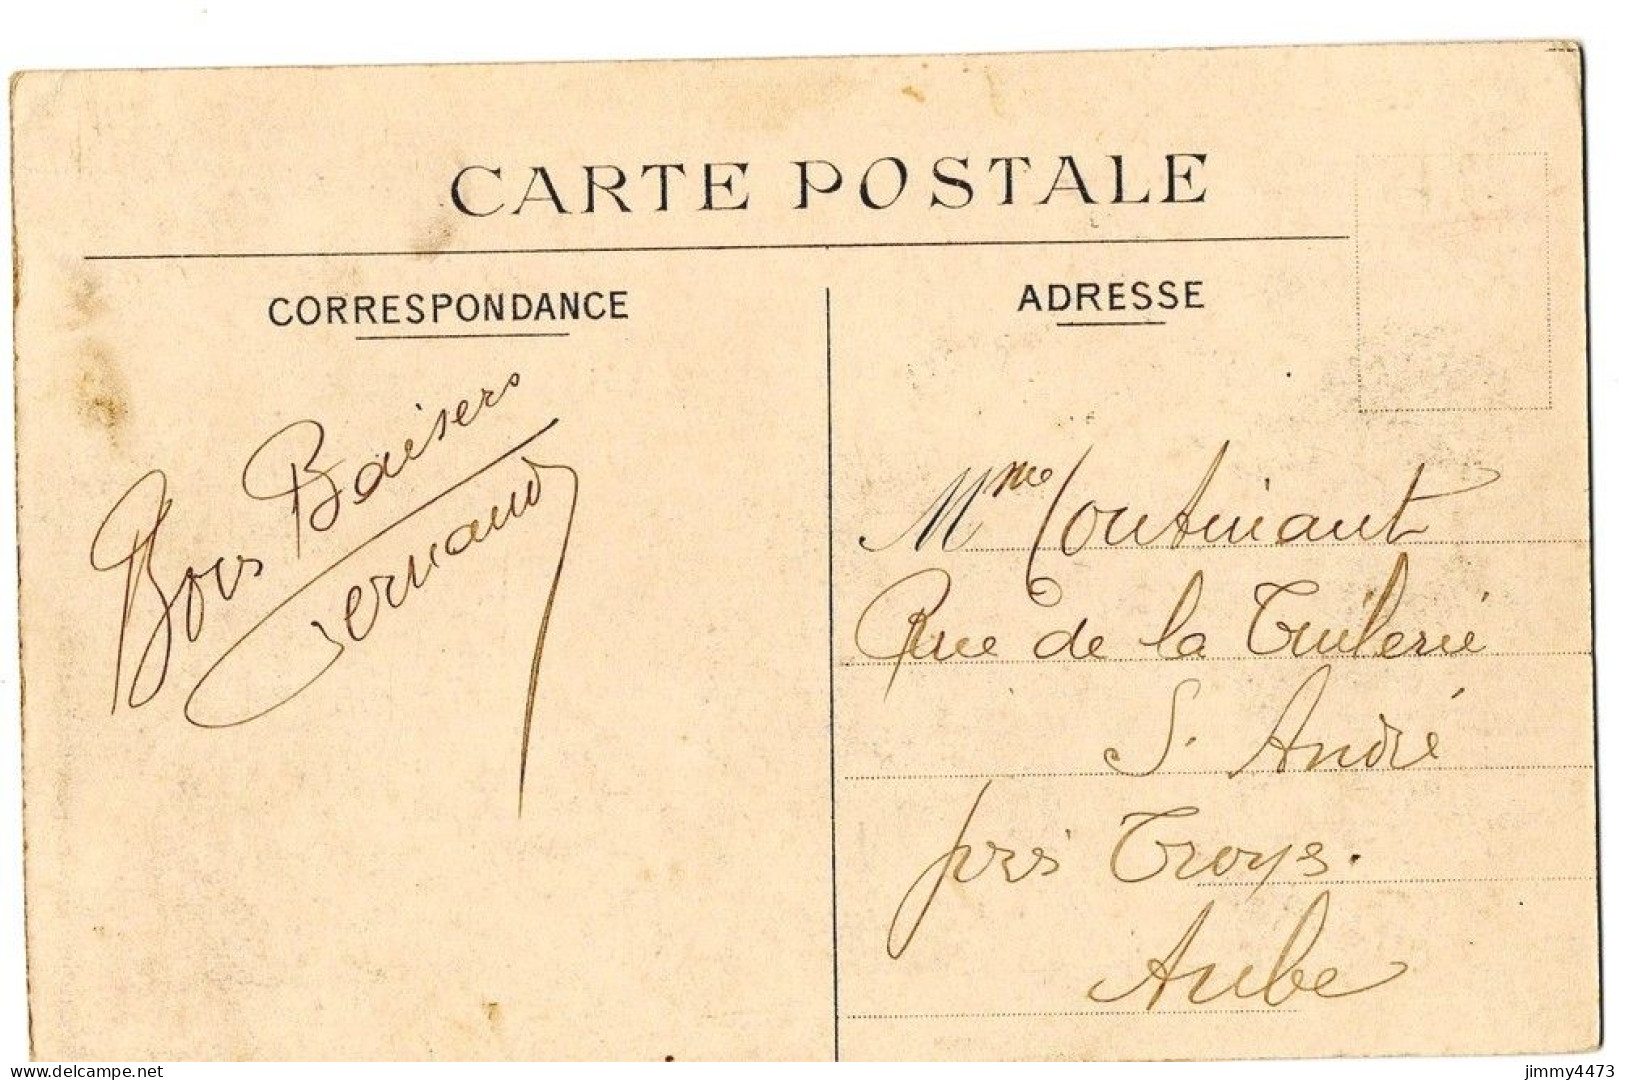 CARTE POSTALE
CORRESPONDANCE
Bons Baisers
Fernand
ADRESSE
Mme Coutinant
Rue de la Tuilerie
S. André
près Troyes.
Aube
delcampe.net
jimmy4473